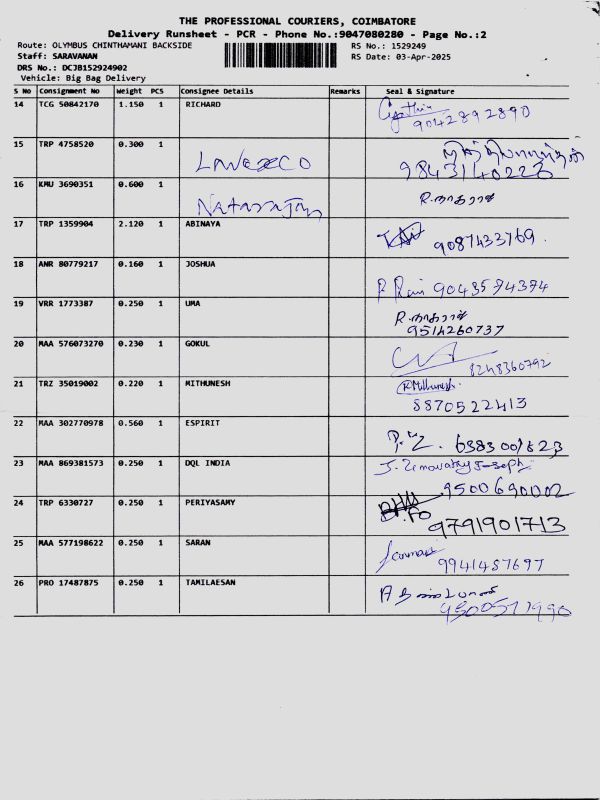 THE PROFESSIONAL COURIERS, COIMBATORE
Delivery Runsheet - PCR - Phone No.:9047080280 - Page No.:2
Route: OLYMBUS CHINTHAMANI BACKSIDE RS No.: 1529249
Staff: SARAVANAN RS Date: 03-Apr-2025
DRS No.: DCJB152924902
Vehicle: Big Bag Delivery
S No Consignment No Weight PCS Consignee Details Remarks Seal & Signature
14 TCG 50842170 1.150 1 RICHARD
9042892890
15 TRP 4758520 0.300 1
9843140226
16 KMU 3690351 0.600 1
Natarajan R.நாகராஜ்
17 TRP 1359904 2.120 1 ABINAYA
9087433769.
18 ANR 80779217 0.160 1 JOSHUA
9043574374
19 VRR 1773387 0.250 1 UMA R.நாகராஜ்
9514260737
20 MAA 576073270 0.230 1 GOKUL
8248360792
21 TRZ 35019002 0.220 1 MITHUNESH R.Mithunesh
8870522413
22 MAA 302770978 0.560 1 ESPIRIT
6383001623
23 MAA 869381573 0.250 1 DQL INDIA
9500690002
24 TRP 6330727 0.250 1 PERIYASAMY
9791901713
25 MAA 577198622 0.250 1 SARAN
9941457697
26 PRO 17487875 0.250 1 TAMILAESAN